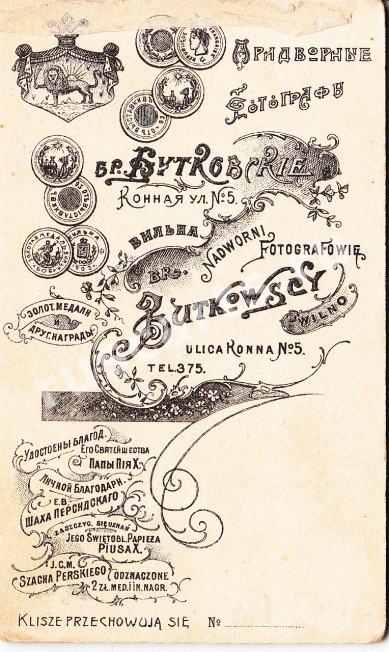 Придворные
Фотографы
Бр. Бутковскіе
Конная ул. №5.
Вильна
Nadworni
Fotografowie
Brc.
Butkowscy
Wilno
Золот. медали
и
друг. награды
Ulica Konna №5.
Tel. 375.
Удостоены благод.
Его Святейшества
Папы Пія X.
Личной благодарн.
Е.В.
Шаха Персидскаго
Zaszczyc. się uznań
Jego Świętobl. Papieża
Piusa X.
J.C.M.
Szacha Perskiego
odznaczone
2 zł. med. i in. nagr.
Klisze przechowują się №